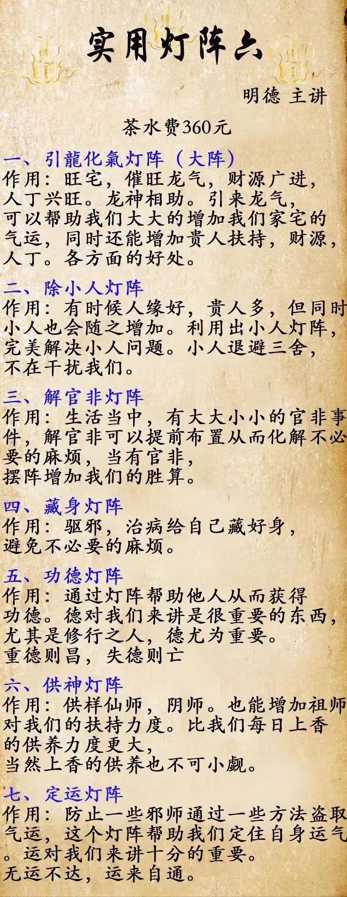 实用灯阵六
明德 主讲
茶水费360元
一、引龍化氣灯阵（大阵）
作用：旺宅，催旺龙气，财源广进，
人丁兴旺。龙神相助。引来龙气，
可以帮助我们大大的增加我们家宅的
气运，同时还能增加贵人扶持，财源，
人丁。各方面的好处。
二、除小人灯阵
作用：有时候人缘好，贵人多，但同时
小人也会随之增加。利用出小人灯阵，
完美解决小人问题。小人退避三舍，
不在干扰我们。
三、解官非灯阵
作用：生活当中，有大大小小的官非事
件，解官非可以提前布置从而化解不必
要的麻烦，当有官非，
摆阵增加我们的胜算。
四、藏身灯阵
作用：驱邪，治病给自己藏好身，
避免不必要的麻烦。
五、功德灯阵
作用：通过灯阵帮助他人从而获得
功德。德对我们来讲是很重要的东西，
尤其是修行之人，德尤为重要。
重德则昌，失德则亡
六、供神灯阵
作用：供样仙师，阴师。也能增加祖师
对我们的扶持力度。比我们每日上香
的供养力度更大，
当然上香的供养也不可小觑。
七、定运灯阵
作用：防止一些邪师通过一些方法盗取
气运，这个灯阵帮助我们定住自身运气
。运对我们来讲十分的重要。
无运不达，运来自通。